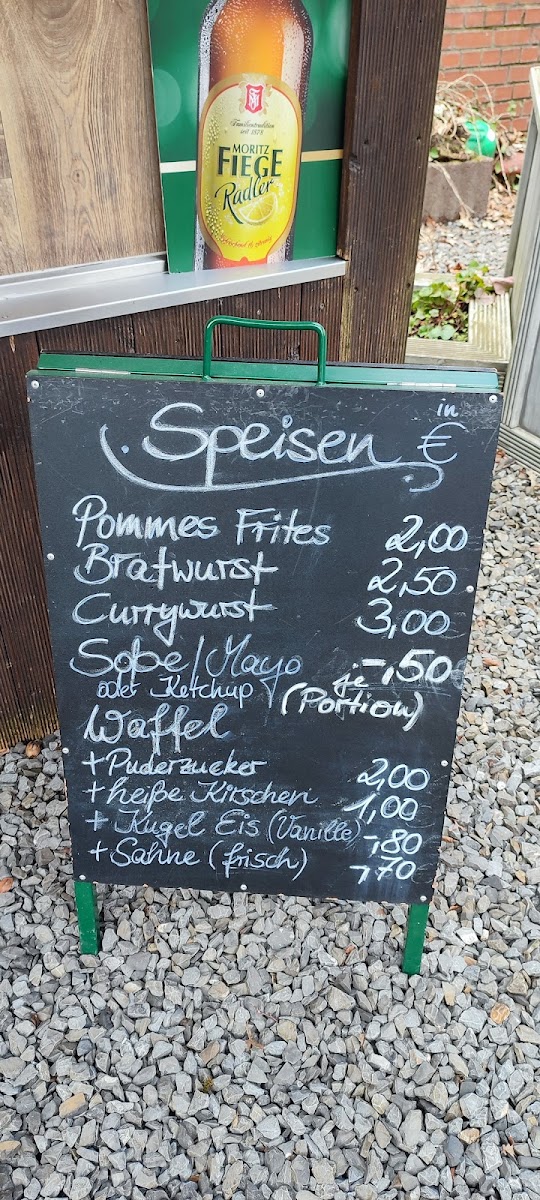 Familientradition
seit 1878
MORITZ
FIEGE
Radler
in
Speisen €
Pommes Frites 2,00
Bratwurst 2,50
Currywurst 3,00
Soße/Mayo je -,50
oder Ketchup (Portion)
Waffel
+ Puderzucker 2,00
+ heiße Kirschen 1,00
+ Kugel Eis (Vanille) -,80
+ Sahne (frisch) -,70